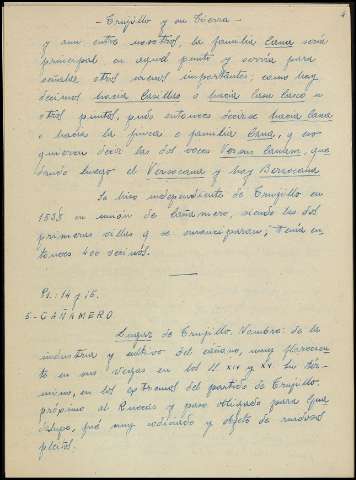 - Trujillo y su Tierra -
y aun entre nosotros, la familia Cana sería
principal en aquel punto y serviría para
señalar otros menos importantes; como hoy
decimos hacia Casillas o hacia Casa Casco u
otros puntos, pués entonces decirse hacia Cana
o hacia la finca o familia Cana, y eso
quieren decir las dos voces Versus Canam, que
dando luego el Versocana y hoy Berzocana
Se hizo independiente de Trujillo en
1538 en unión de Cañamero, siendo las dos
primeras villas q se emanciparon; tenía en
tonces 400 vecinos.
Ps.: 14 y 15.
5- CAÑAMERO.
Lugar de Trujillo. Nombre: de la
industria y cultivo del cáñamo, muy florecien
te en sus vegas en los ss XIV y XV. Su tér-
mino, en los extremos del partido de Trujillo,
próximo al Ruecas y paso obligado para Gua
dalupe, fué muy codiciado y objeto de ruidosos
pleitos.